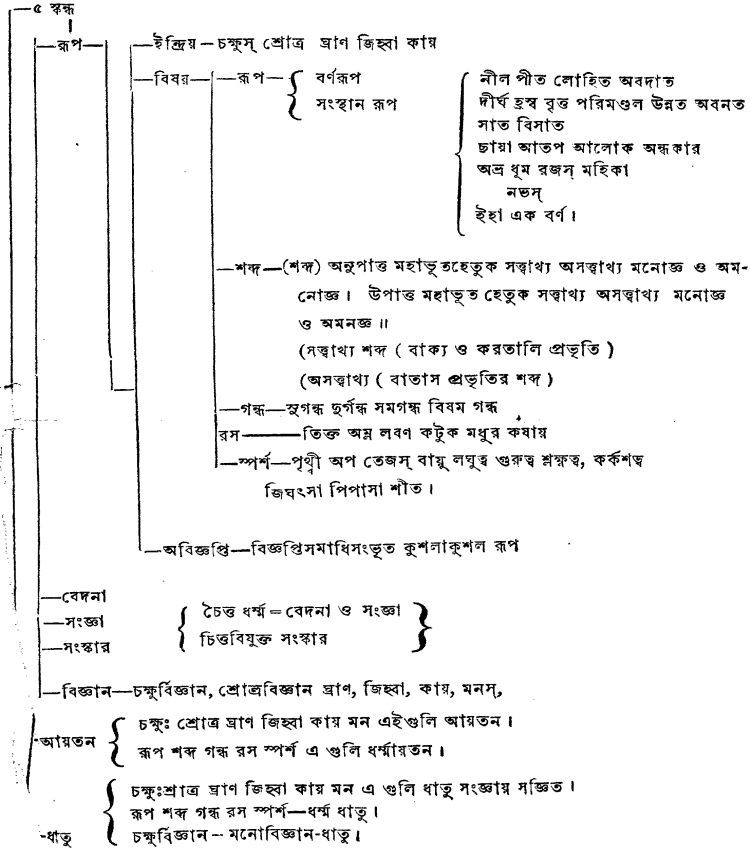 ৫ স্কন্ধ
রূপ
ইন্দ্রিয় – চক্ষুস্ শ্রোত্র ঘ্রাণ জিহ্বা কায়
বিষয় — রূপ — বর্ণরূপ
সংস্থান রূপ
নীল পীত লোহিত অবদাত
দীর্ঘ হ্রস্ব বৃত্ত পরিমণ্ডল উন্নত অবনত
সাত বিসাত
চায়া আতপ আলোক অন্ধকার
অভ্র ধূম রজস্ মহিকা
নভস্
ইহা এক বর্ণ।
শব্দ—(শব্দ) অনুপাত্ত মহাভূতহেতুক সত্ত্বাথ্য অসত্ত্বাথ্য মনোজ্ঞ ও অম-
নোজ্ঞ। উপাত্ত মহাভূত হেতুক সত্ত্বাথ্য অসত্ত্বাথ্য মনোজ্ঞ
ও অমনজ্ঞ॥
(সত্ত্বাথ্য শব্দ ( বাক্য ও করতালি প্রভৃতি )
(অসত্ত্বাথ্য ( বাতাস প্রভৃতির শব্দ )
গন্ধ—সুগন্ধ দুর্গন্ধ সমগন্ধ বিষম গন্ধ
রস——তিক্ত অম্ল লবণ কটুক মধুর কষায়
স্পর্শ—পৃথ্বী অপ তেজস্ বায়ু লঘুত্ব গুরুত্ব শ্লক্ষ্ণত্ব, কর্কশত্ব
জিঘৎসা পিপাসা শীত।
অবিজ্ঞপ্তি—বিজ্ঞপ্তিসমাধিসংভূত কুশলাকুশল রূপ
বেদনা
সংজ্ঞা
সংস্কার
চৈত্ত ধর্ম্ম = বেদনা ও সংজ্ঞা
চিত্তবিযুক্ত সংস্কার
বিজ্ঞান—চক্ষুর্বিজ্ঞান, শ্রোত্রবিজ্ঞান ঘ্রাণ, জিহ্বা, কায়, মনস্,
আয়তন
চক্ষুঃ শ্রোত্র ঘ্রাণ জিহ্বা কায় মন এইগুলি আয়তন।
রূপ শব্দ গন্ধ রস স্পর্শ এ গুলি ধর্ম্মায়তন।
চক্ষুঃশ্রাত্র ঘ্রাণ জিহ্বা কায় মন এ গুলি ধাতু সংজ্ঞায় সজ্ঞিত।
রূপ শব্দ গন্ধ রস স্পর্শ—ধর্ম্ম ধাতু।
-ধাতু চক্ষুর্বিজ্ঞান – মনোবিজ্ঞান-ধাতু।